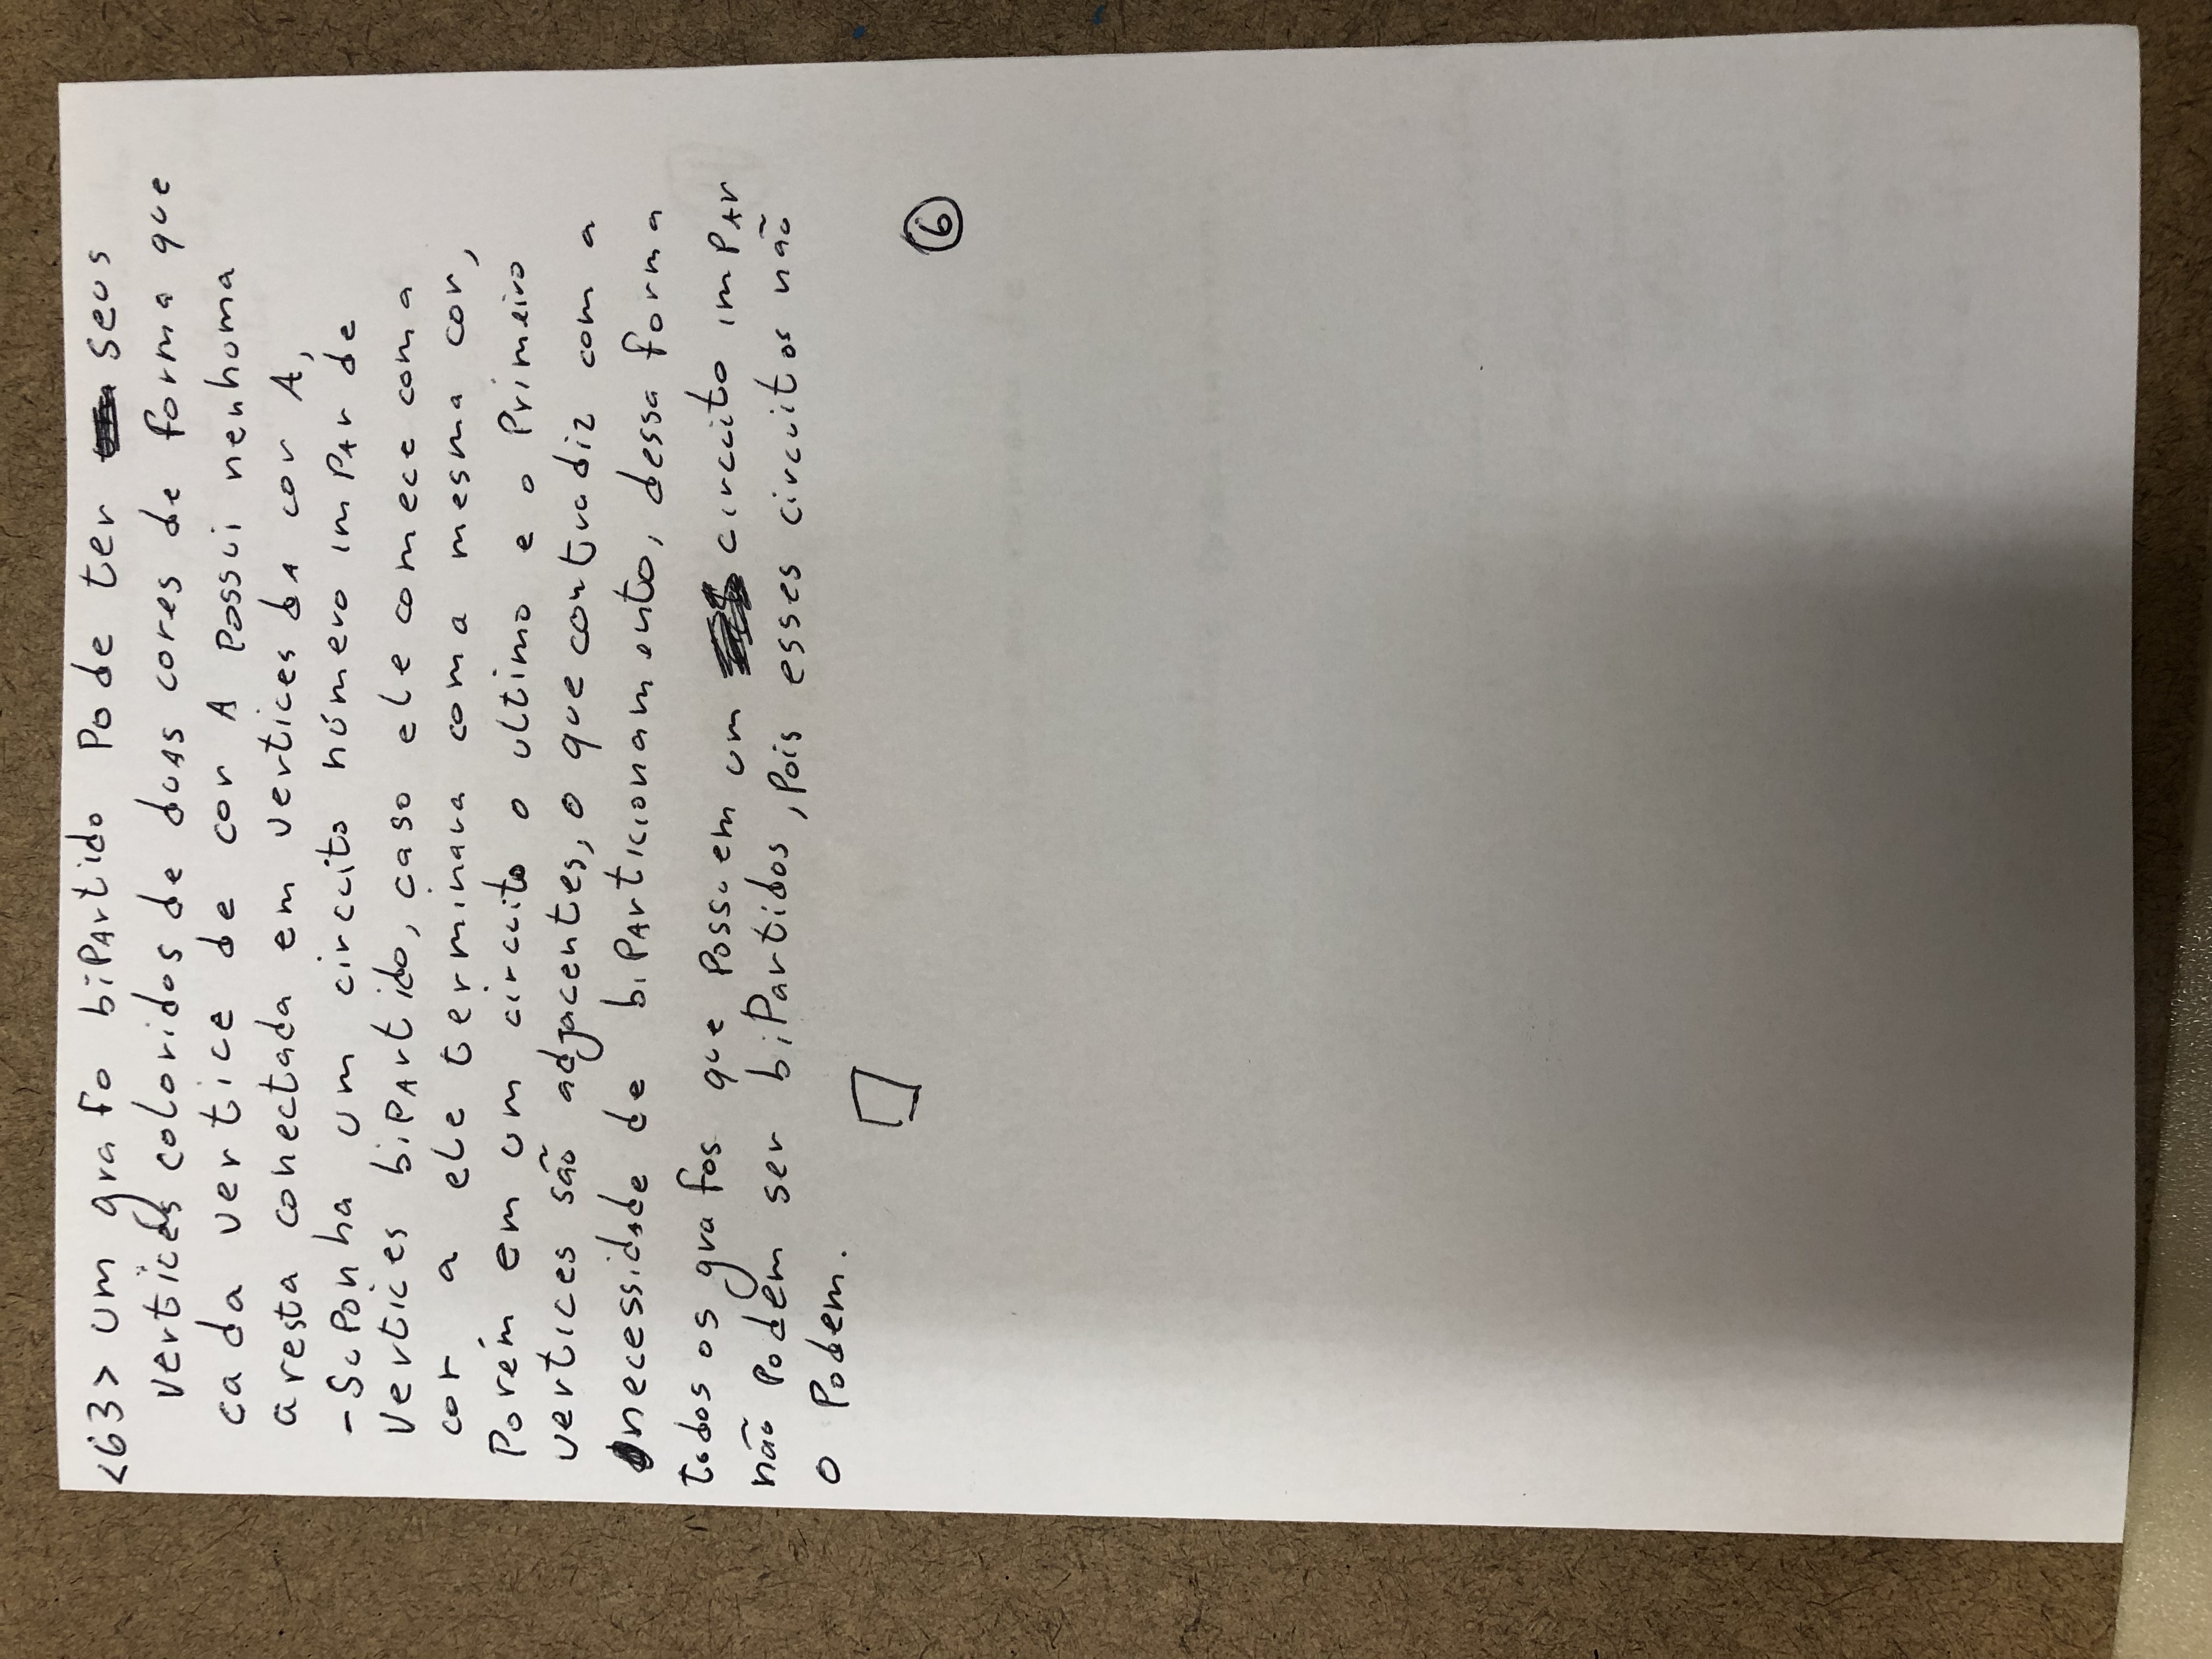 <63> Um grafo bipartido pode ter seus
vertices coloridos de duas cores de forma que
cada vertice de cor A possui nenhuma
aresta conectada em vertices da cor A,
- Suponha um circuito número impar de
vertices bipartido, caso ele comece com a
cor a ele terminara com a mesma cor,
Porém em um circuito o ultimo e o primeiro
vertices são adjacentes, o que contradiz com a
necessidade de biparticionamento, dessa forma
todos os grafos que possuem um circuito impar
não podem ser bipartidos, pois esses circuitos não
o podem.
6